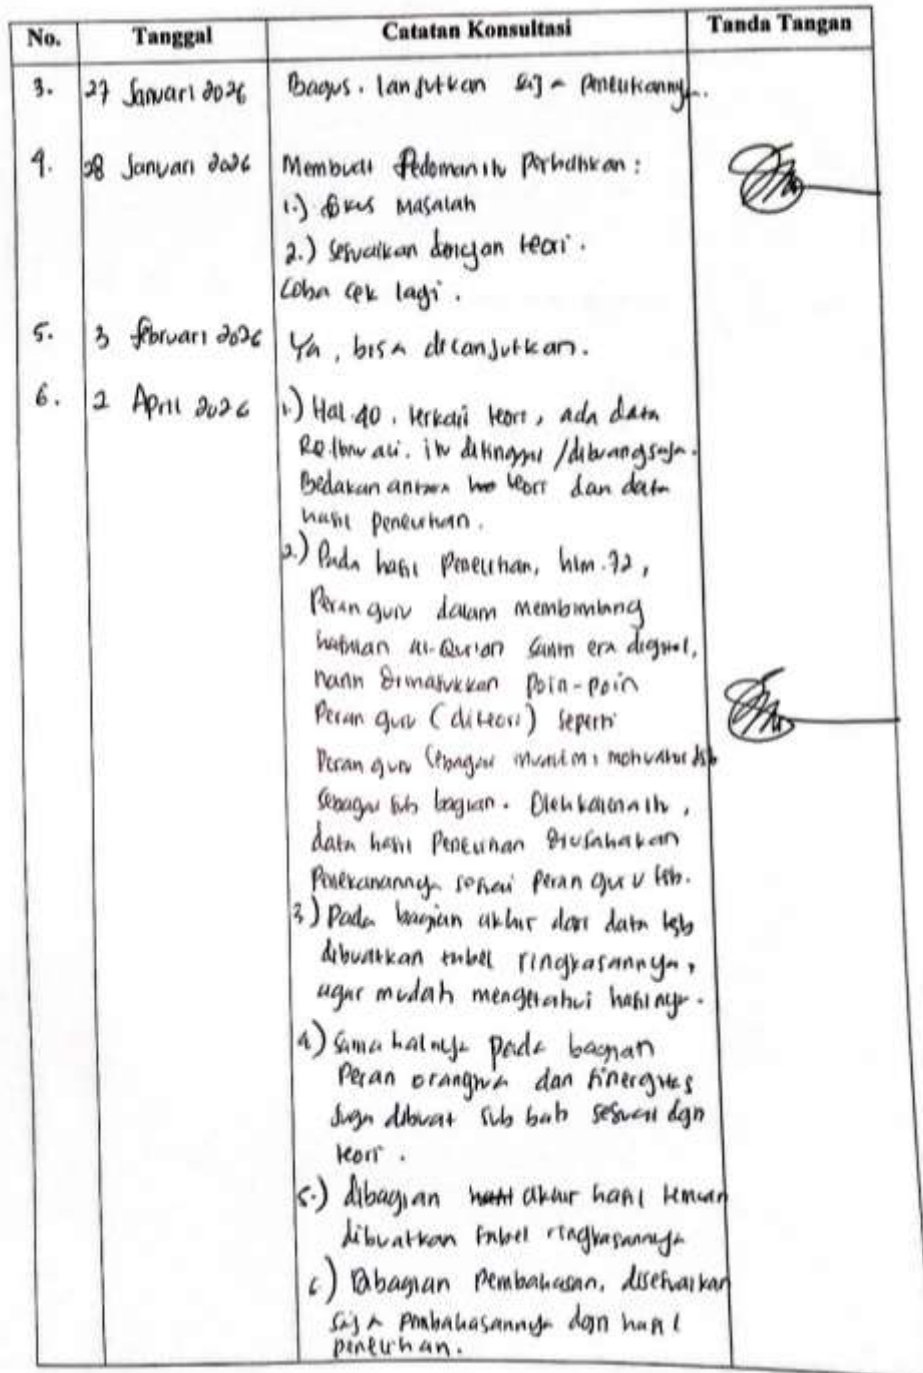 No. Tanggal Catatan Konsultasi Tanda Tangan
3. 27 Januari 2026 Bagus. lanjutkan saja penelitiannya.
4. 28 Januari 2026 Membuat Pedoman itu perhatikan :
1.) fokus Masalah
2.) sesuaikan dengan teori.
Coba cek lagi.
5. 3 februari 2026 Ya, bisa dilanjutkan.
6. 2 April 2026 1.) Hal.40, terkait teori, ada data
itu /dibuang saja.
Bedakan antara teori dan data
hasil penelitian.
2.) Pada hasil Penelitian, hlm.72,
Peran guru dalam membimbing
hafalan al-Qur'an era digital,
dimasukkan Poin-poin
Peran guru (di teori) seperti
Peran guru sebagai mualim, motivator dsb
sebagai sub bagian. Oleh karena itu,
data hasil Penelitian diusahakan
Penekanannya sesuai peran guru tsb.
3) Pada bagian akhir dari data tsb
dibuatkan tabel ringkasannya,
agar mudah mengetahui hasilnya.
4) Sama halnya pada bagian
Peran orangtua dan sinergitas
Juga dibuat sub bab sesuai dgn
teori.
5.) dibagian akhir hasil temuan
dibuatkan tabel ringkasannya
6) Dibagian Pembahasan, disesuaikan
saja pembahasannya dgn hasil
penelitian.